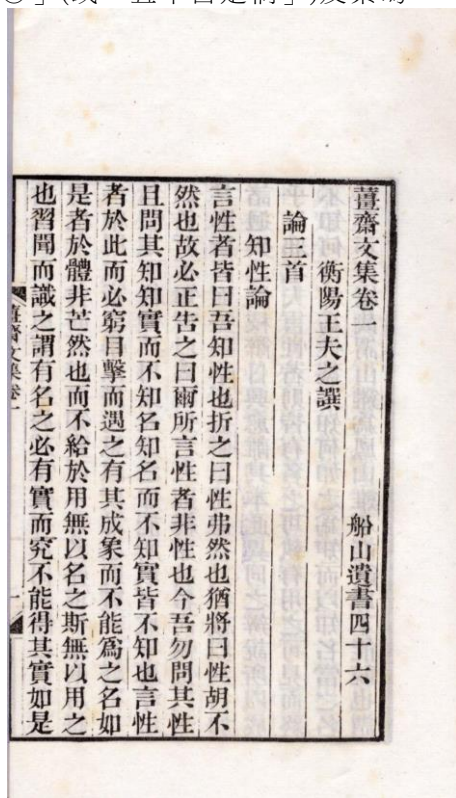 薑齋文集卷一
船山遺書四十六
衡陽王夫之譔
論三首
知性論
言性者皆曰吾知性也折之曰性弗然也猶將曰性胡不
然也故必正告之曰爾所言性者非性也今吾勿問其性
且問其知知實而不知名知名而不知實皆不知也言性
者於此而必窮目擊而遇之有其成象而不能爲之名如
是者於體非芒然也而不給於用無以名之斯無以用之
也習聞而識之謂有名之必有實而究不能得其實如是
薑齋文集卷一
一